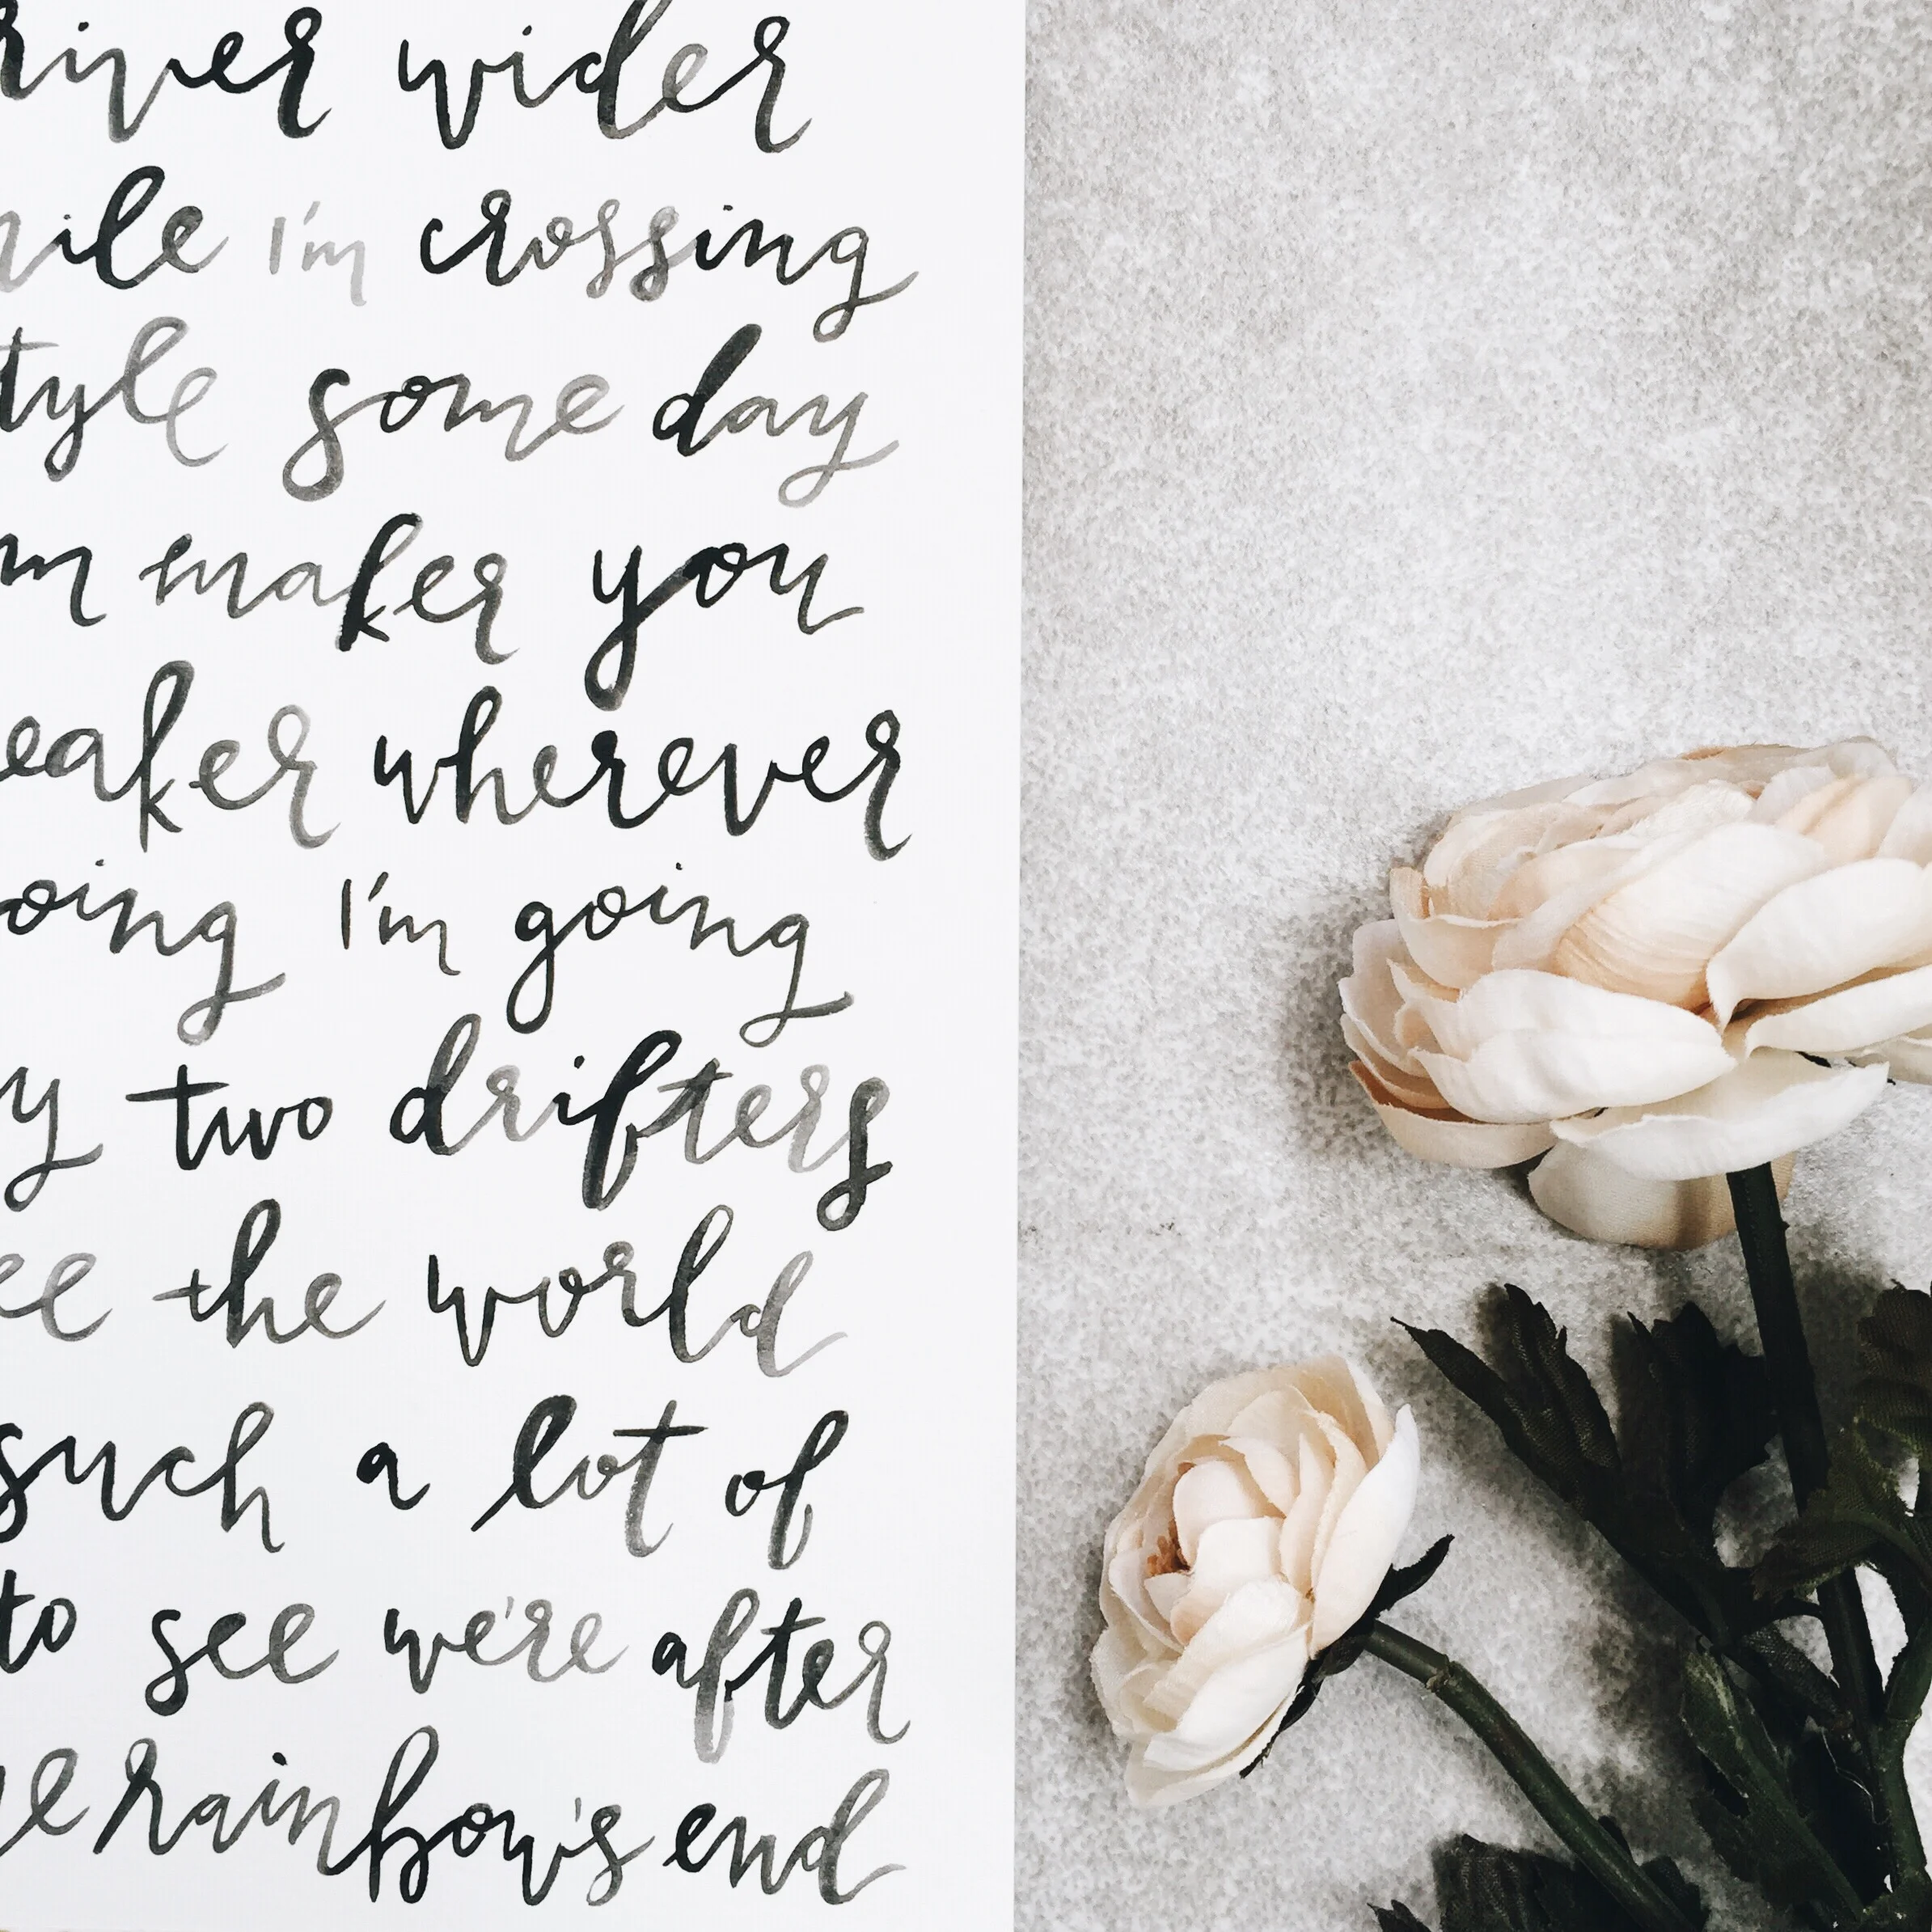 river wider
ile I'm crossing
tyle some day
m maker you
eaker wherever
oing I'm going
y two drifters
ee the world
such a lot of
to see we're after
e rainbow's end